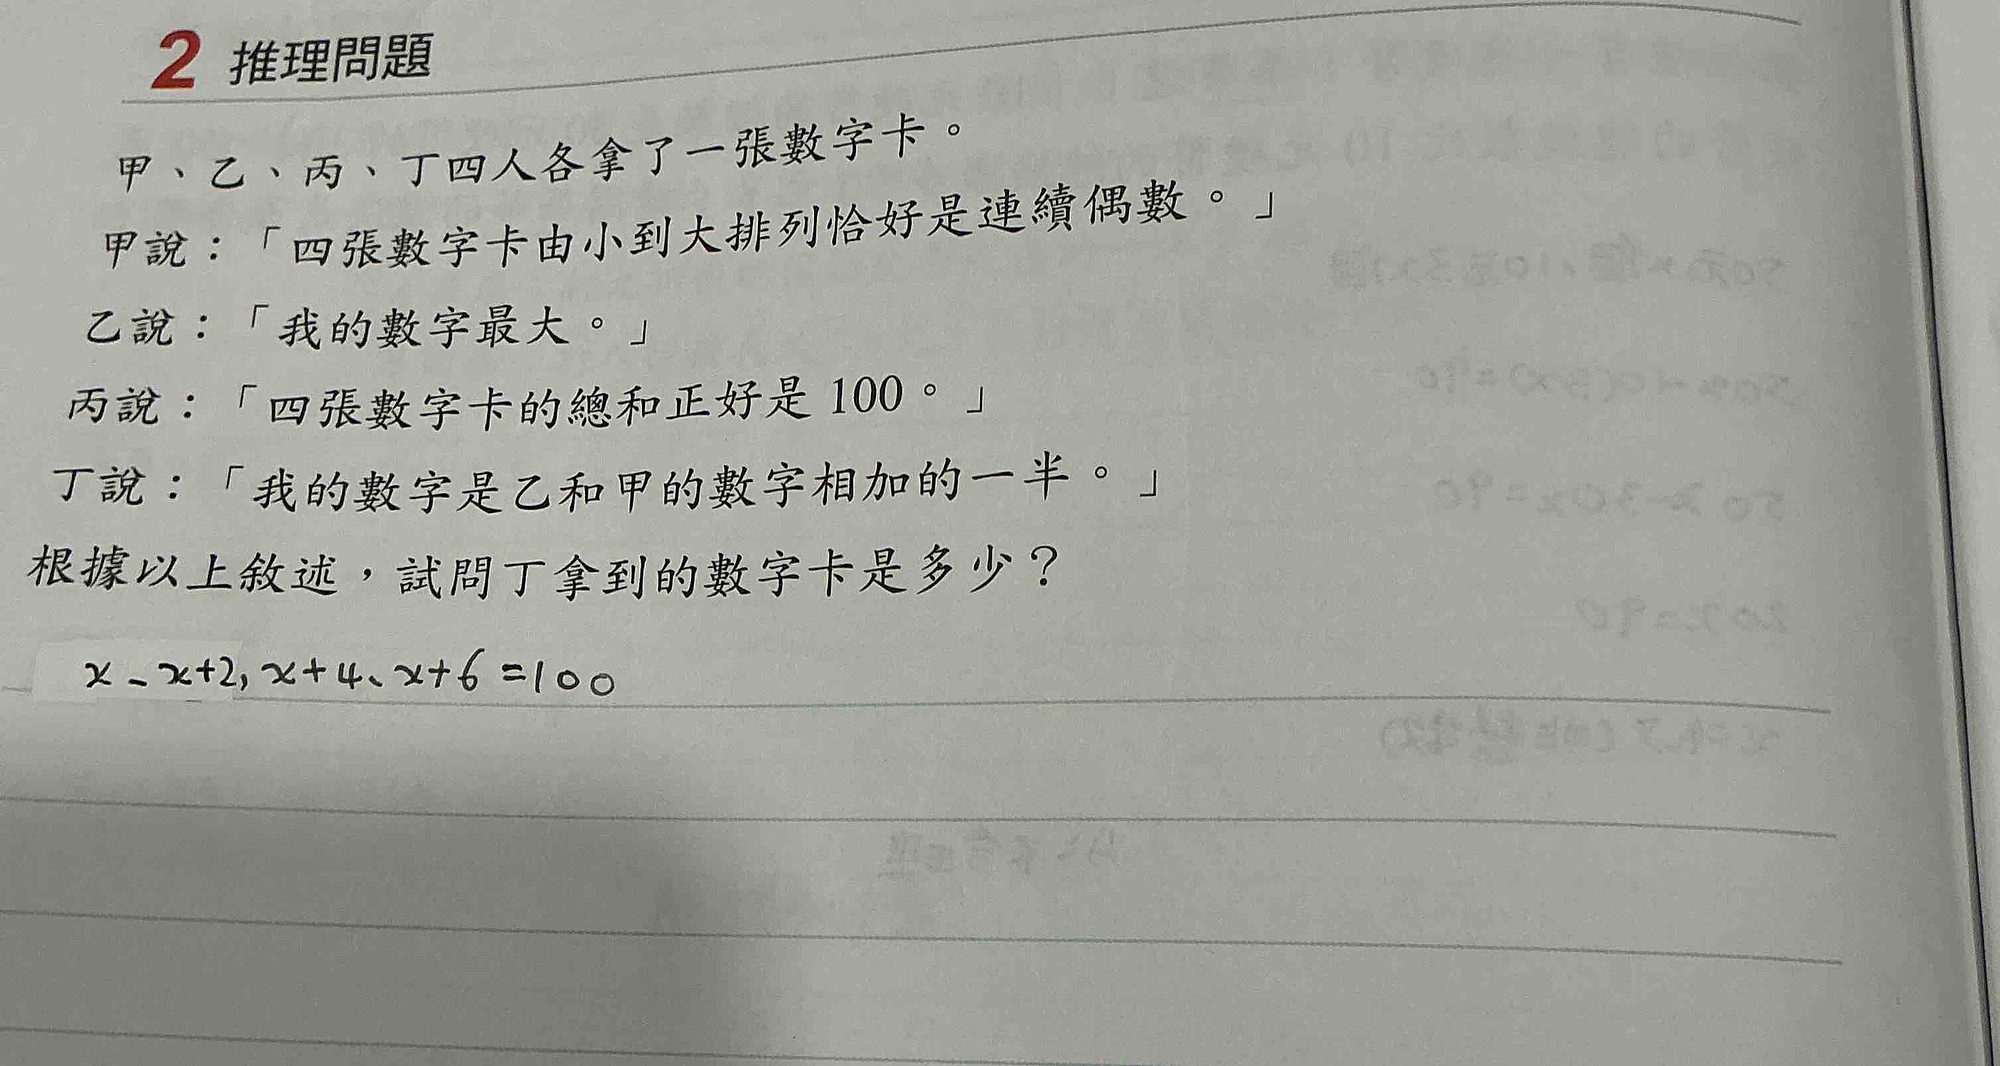 2 推理問題
甲、乙、丙、丁四人各拿了一張數字卡。
甲說：「四張數字卡由小到大排列恰好是連續偶數。」
乙說：「我的數字最大。」
丙說：「四張數字卡的總和正好是 100。」
丁說：「我的數字是乙和甲的數字相加的一半。」
根據以上敘述，試問丁拿到的數字卡是多少？
x、x+2, x+4、x+6 =100